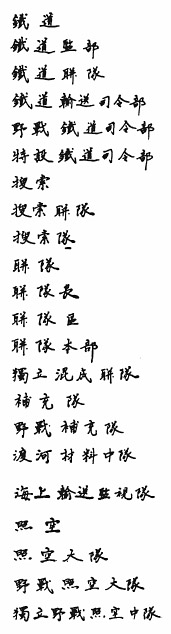 鐵道
鐵道監部
鐵道聯隊
鐵道輸送司令部
野戰鐵道司令部
特設鐵道司令部
搜索
搜索聯隊
搜索隊
聯隊
聯隊長
聯隊區
聯隊本部
獨立混成聯隊
補充隊
野戰補充隊
渡河材料中隊
海上輸送監視隊
照空
照空大隊
野戰照空大隊
獨立野戰照空中隊